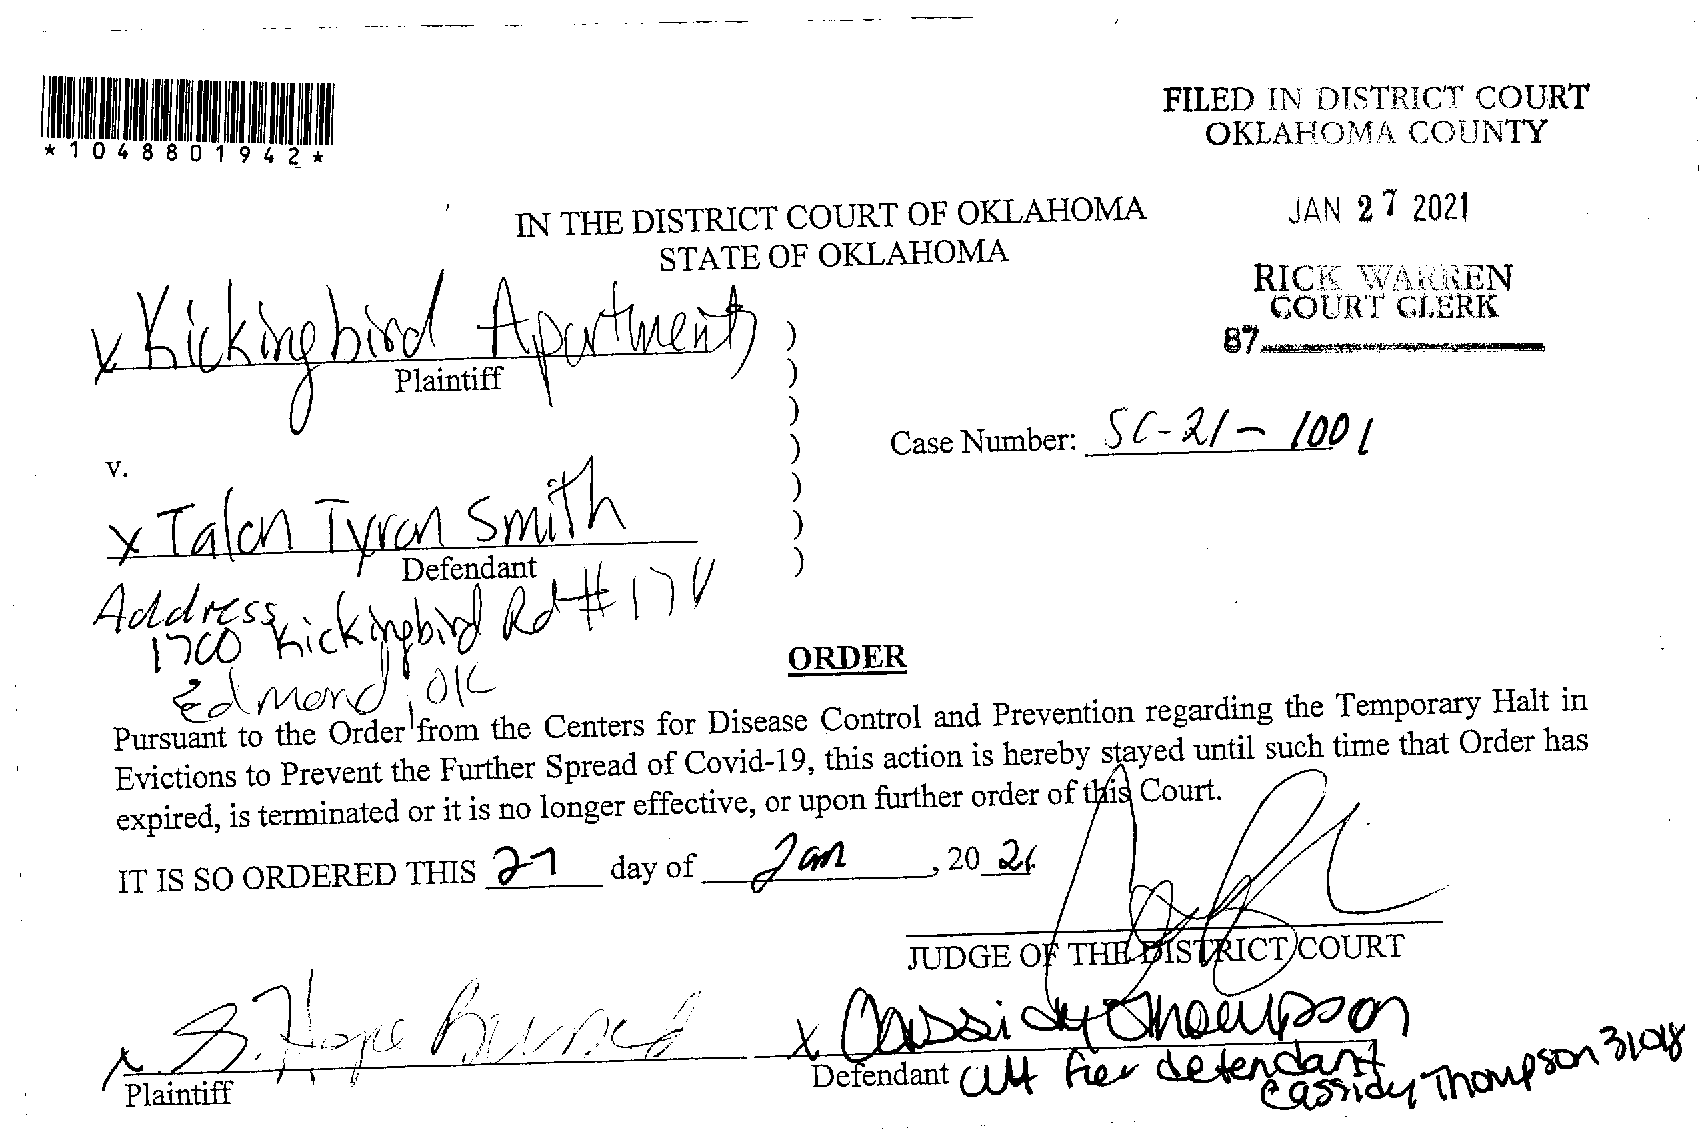 *1048801942*
FILED IN DISTRICT COURT
OKLAHOMA COUNTY
JAN 27 2021
RICK WARREN
COURT CLERK
87
IN THE DISTRICT COURT OF OKLAHOMA
STATE OF OKLAHOMA
x Kickingbird Apartments )
Plaintiff )
)
v. )
)
x Talon Tyron Smith )
Defendant )
Case Number: SC-21-1001
Address
1700 Kickingbird Rd #174
Edmond, OK
ORDER
Pursuant to the Order from the Centers for Disease Control and Prevention regarding the Temporary Halt in
Evictions to Prevent the Further Spread of Covid-19, this action is hereby stayed until such time that Order has
expired, is terminated or it is no longer effective, or upon further order of this Court.
IT IS SO ORDERED THIS 27 day of Jan, 2021
JUDGE OF THE DISTRICT COURT
x S. Hope
Plaintiff
x Cassidy Thompson
Defendant Att for defendant
Cassidy Thompson 31048